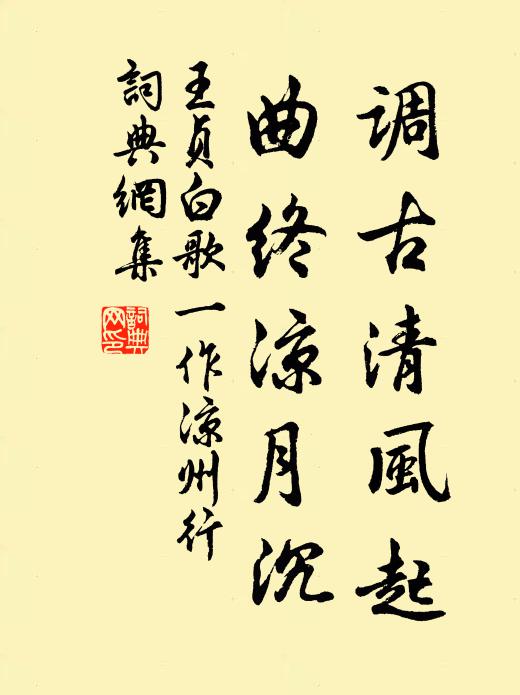 调古清風起
曲终凉月沉
王貞白歌一作凉州行
詞典網集
詞典网印